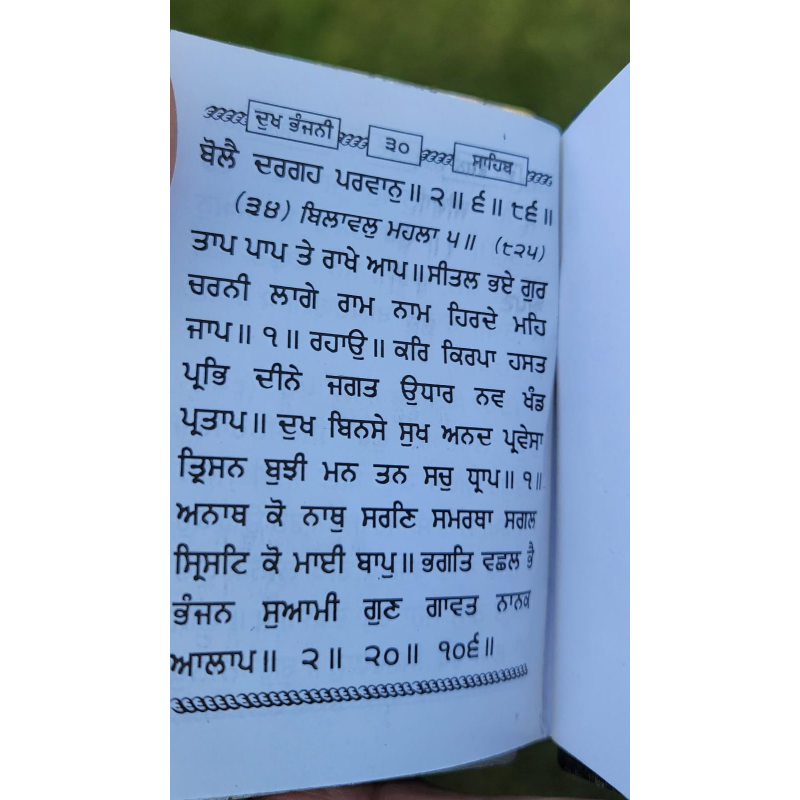 ਦੁਖ ਭੰਜਨੀ ੩੦ ਸਾਹਿਬ
ਬੋਲੈ ਦਰਗਹ ਪਰਵਾਨੁ॥ ੨॥ ੬॥ ੮੬॥
(੩੪) ਬਿਲਾਵਲੁ ਮਹਲਾ ੫॥ (੮੨੫)
ਤਾਪ ਪਾਪ ਤੇ ਰਾਖੇ ਆਪ॥ਸੀਤਲ ਭਏ ਗੁਰ
ਚਰਨੀ ਲਾਗੇ ਰਾਮ ਨਾਮ ਹਿਰਦੇ ਮਹਿ
ਜਾਪ॥ ੧॥ ਰਹਾਉ॥ ਕਰਿ ਕਿਰਪਾ ਹਸਤ
ਪ੍ਰਭਿ ਦੀਨੇ ਜਗਤ ਉਧਾਰ ਨਵ ਖੰਡ
ਪ੍ਰਤਾਪ॥ ਦੁਖ ਬਿਨਸੇ ਸੁਖ ਅਨਦ ਪ੍ਰਵੇਸਾ
ਤ੍ਰਿਸਨ ਬੁਝੀ ਮਨ ਤਨ ਸਚੁ ਧ੍ਰਾਪ॥ ੧॥
ਅਨਾਥ ਕੋ ਨਾਥੁ ਸਰਣਿ ਸਮਰਥਾ ਸਗਲ
ਸ੍ਰਿਸਟਿ ਕੋ ਮਾਈ ਬਾਪੁ॥ ਭਗਤਿ ਵਛਲ ਭੈ
ਭੰਜਨ ਸੁਆਮੀ ਗੁਣ ਗਾਵਤ ਨਾਨਕ
ਆਲਾਪ॥ ੨॥ ੨੦॥ ੧੦੬॥